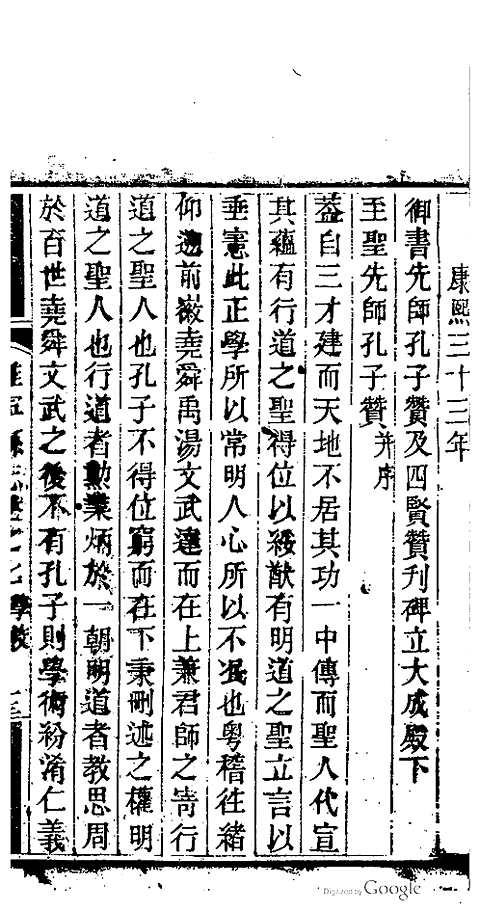 康熙三十三年
御書先師孔子贊及四賢贊刋碑立大成殿下
至聖先師孔子贊并序
葢自三才建而天地不居其功一中傳而聖人代宣
其蘊有行道之聖得位以綏猷有明道之聖立言以
垂憲此正學所以常明人心所以不泯也粤稽徃緒
仰遡前徽堯舜禹湯文武達而在上兼君師之寄行
道之聖人也孔子不得位窮而在下秉刪述之權明
道之聖人也行道者勳業炳於一朝明道者教思周
於百世堯舜文武之後不有孔子則學術紛淆仁義
縣志卷之七 學校
Digitized by Google